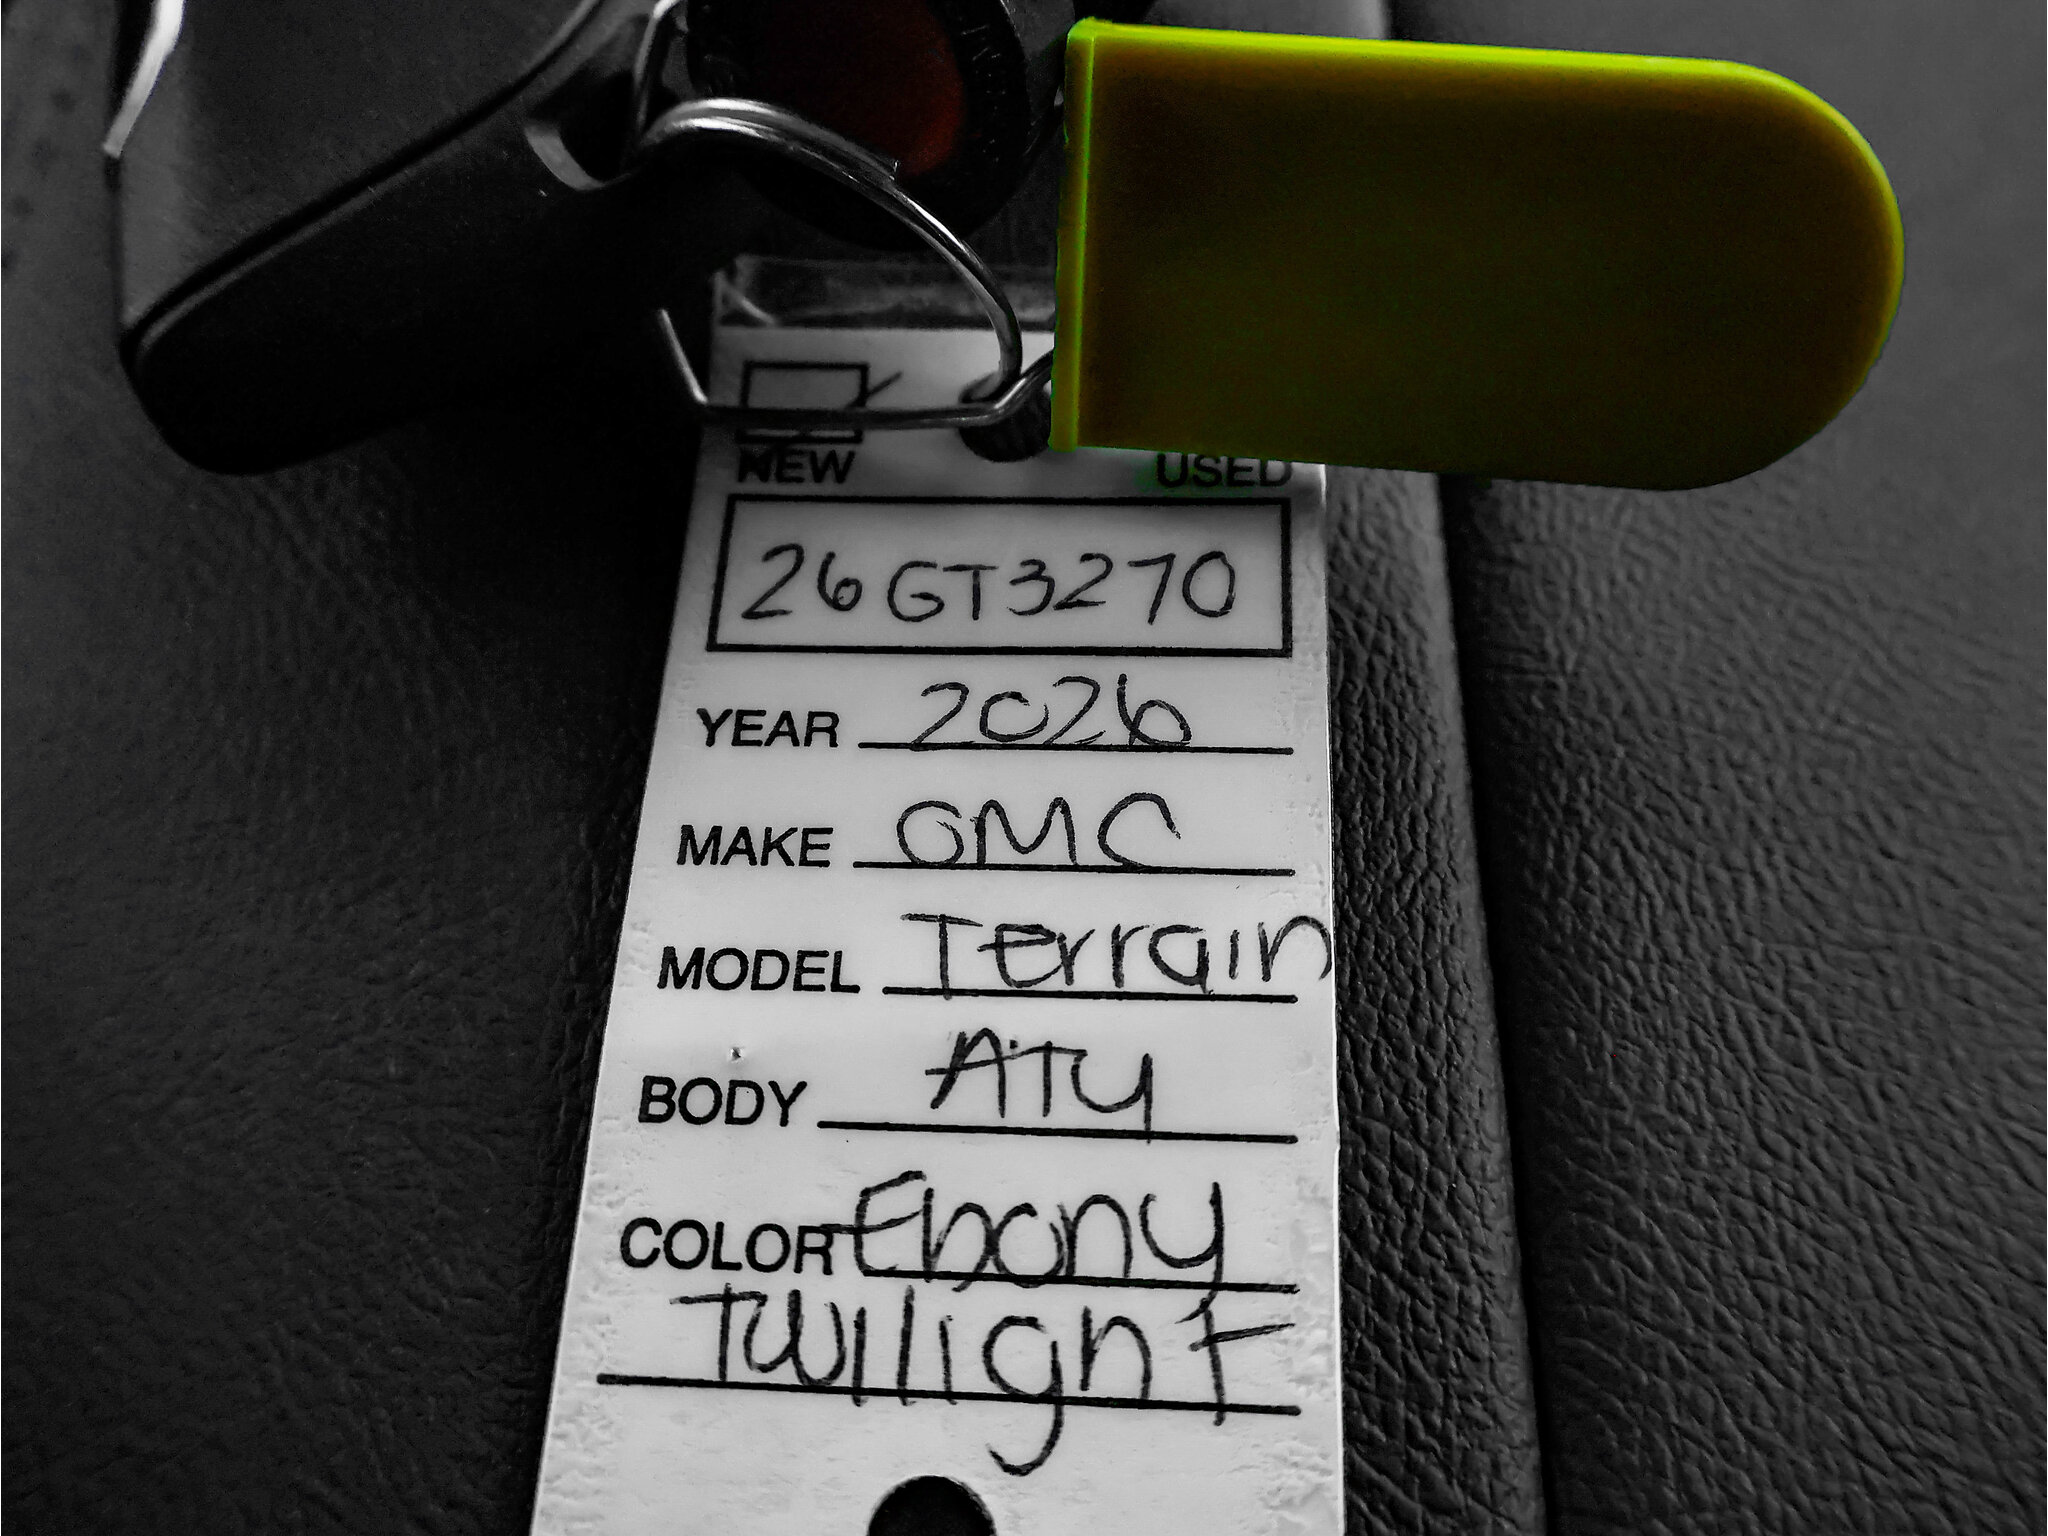 NEW USED
26GT3270
YEAR 2026
MAKE GMC
MODEL Terrain
BODY AT4
COLOR Ebony
Twilight